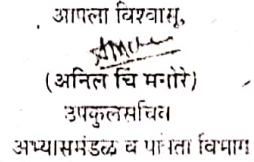 आपला विश्वासू,
(अनिल चिं मनोरे)
उपकुलसचिव
अभ्यासमंडळ व पात्रता विभाग